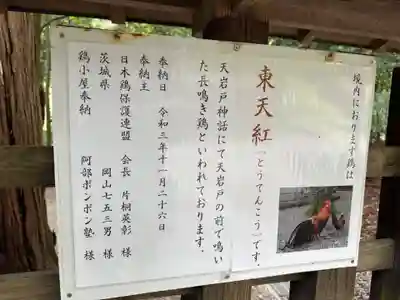 境内におります鶏は
東天紅「とうてんこう」です．
天岩戸神話にて天岩戸の前で鳴い
た長鳴き鶏といわれております．
奉納日 令和三年十一月二十六日
奉納主
日本鶏保護連盟 会長 片桐英彰 様
茨城県 岡山七五三男 様
鶏小屋奉納 阿部ポンポン塾 様